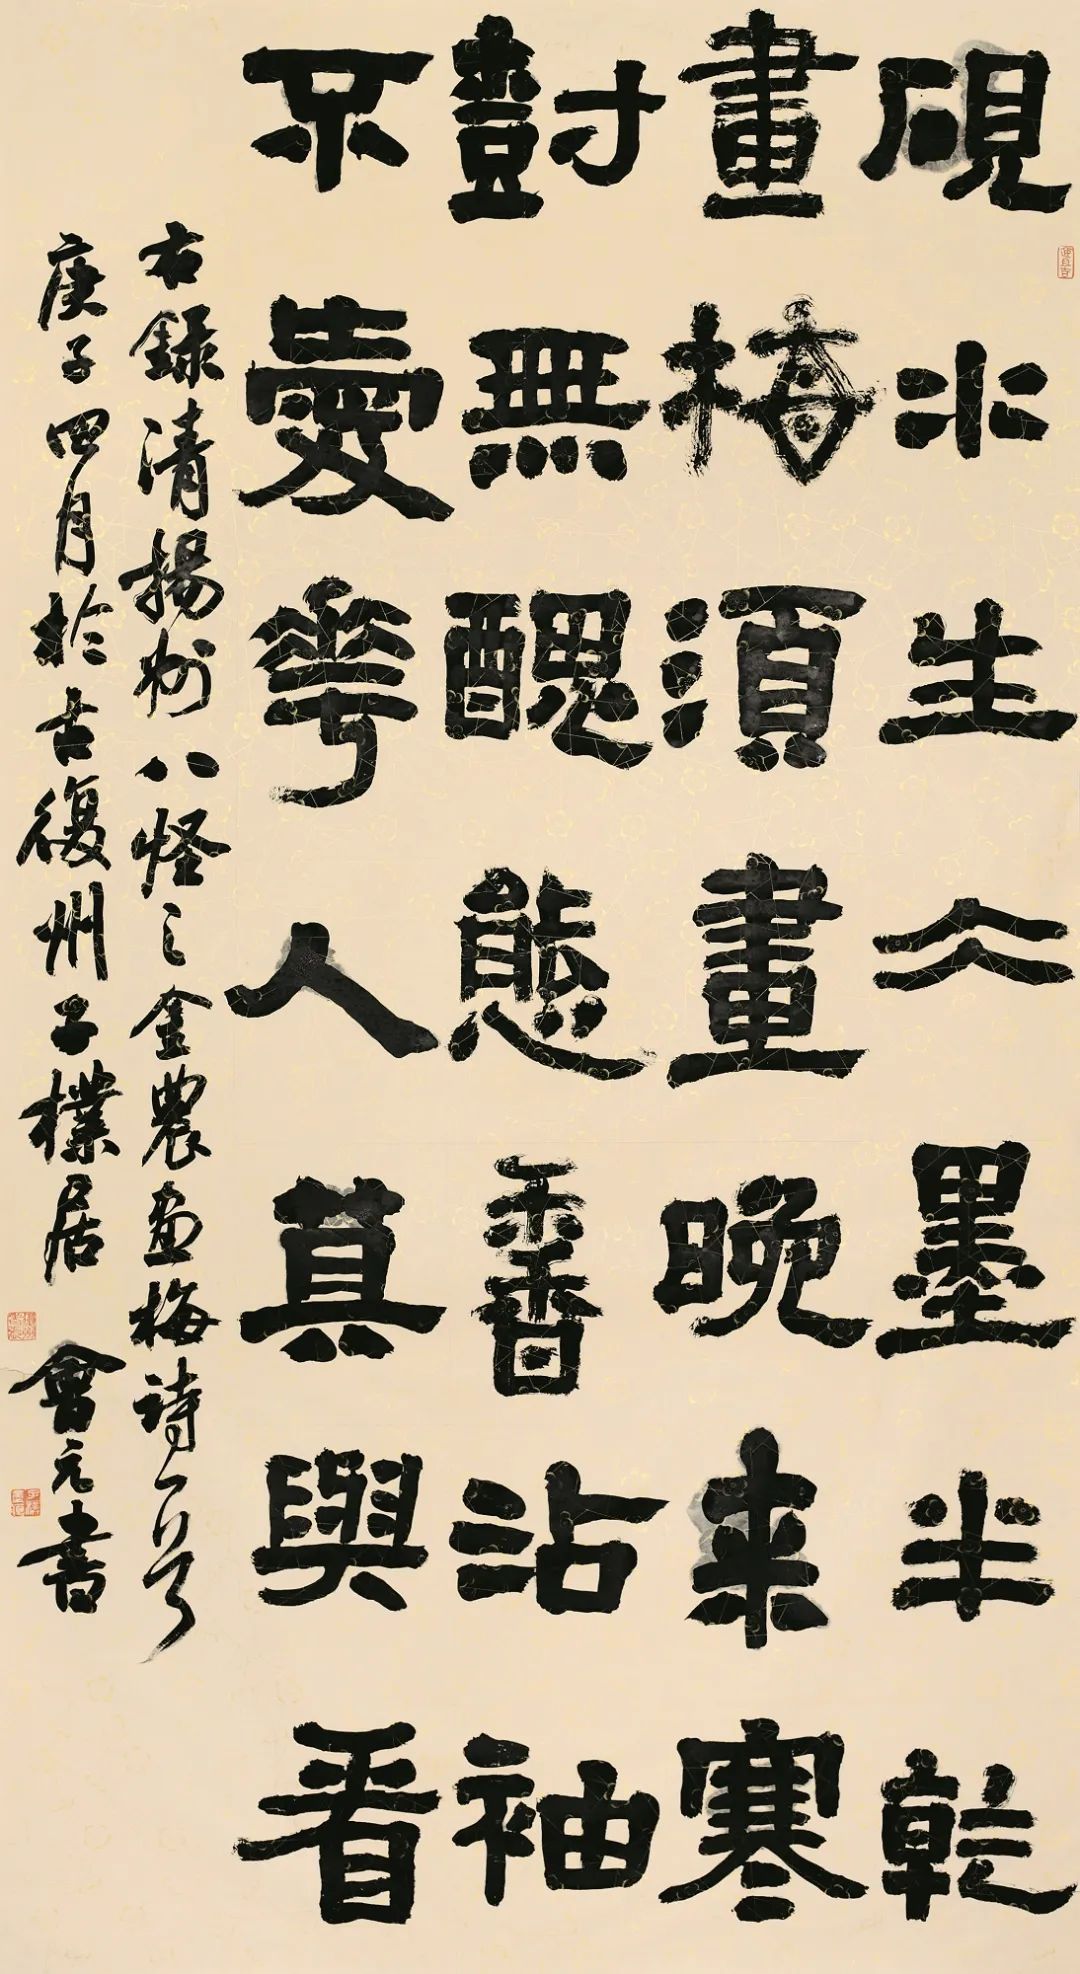 硯水生仌墨半乾
畫梅須畫晚來寒
樹無醜態香沾袖
不愛華人莫與看
右録清揚州八怪之金農画梅詩一首
庚子四月於古復州子樸居 會元書